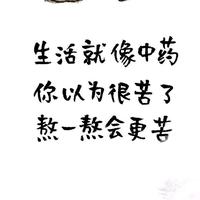 生活就像中药
你以为很苦了
熬一熬会更苦